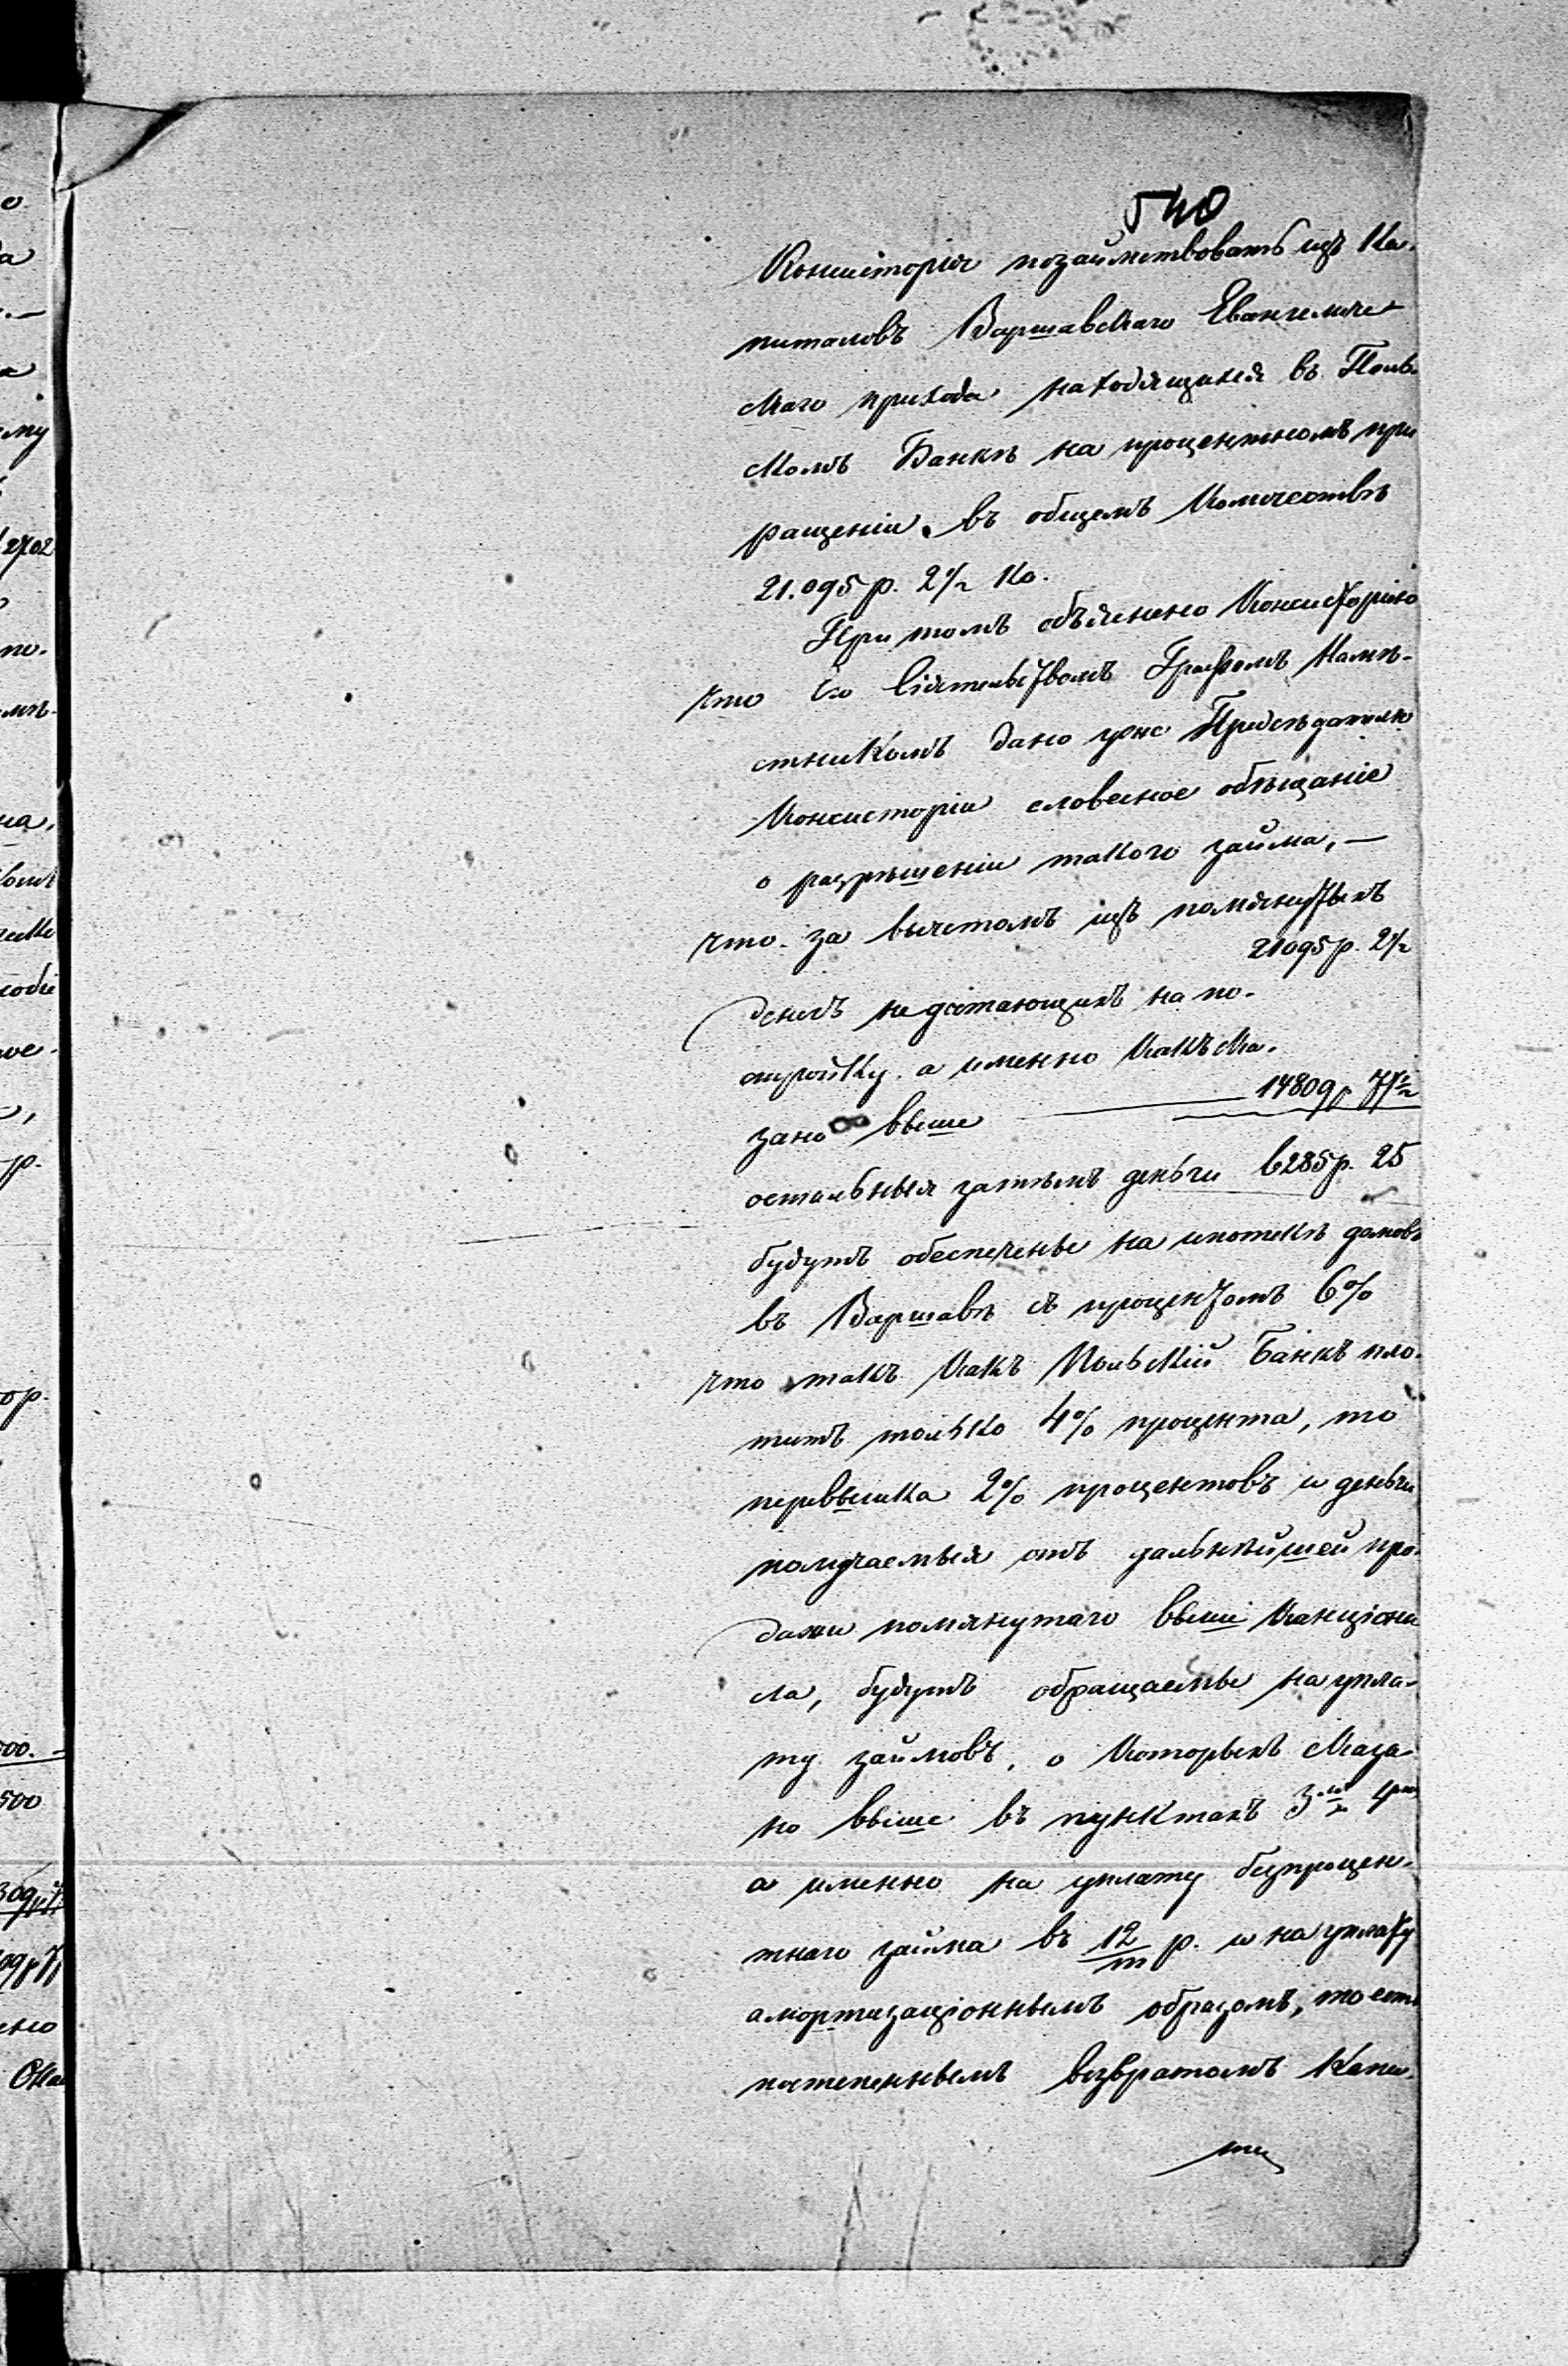 540
Консисторія позаимствовать изъ Ка-
питаловъ Варшавскаго Евангеличе-
скаго прихода находящихся въ Поль-
скомъ Банкѣ на процентномъ при
ращеніи въ общемъ количествѣ
21.095 р. 2½ ко.
При томъ объяснено Консисторіею
что Его Сіятельствомъ Графомъ Намѣ-
стникомъ дано уже Предсѣдателю
Консисторіи словесное обѣщаніе
о разрѣшеніи такого займа, —
что за вычетомъ изъ помянутыхъ
21095 р. 2½
денегъ недостающихъ на по-
стройку а именно какъ ска-
зано выше 14809 р. 77½
остальныя затѣмъ деньги 6285 р. 25
будутъ обеспечены на ипотекѣ домовъ
въ Варшавѣ съ процентомъ 6%
что такъ какъ Польскій Банкъ пла-
титъ только 4% процента, то
перевышка 2% процентовъ и деньги
получаемыя отъ дальнѣйшей про-
дажи помянутаго выше Канціона
ла, будутъ обращаемы на упла-
ту займовъ, о которыхъ сказа-
но выше въ пунктахъ 3 и 4
а именно на уплату безпроцен-
тнаго займа въ 12/m р. и на уплату
амортизаціоннымъ образомъ, то есть
постепеннымъ возвратомъ Капи-